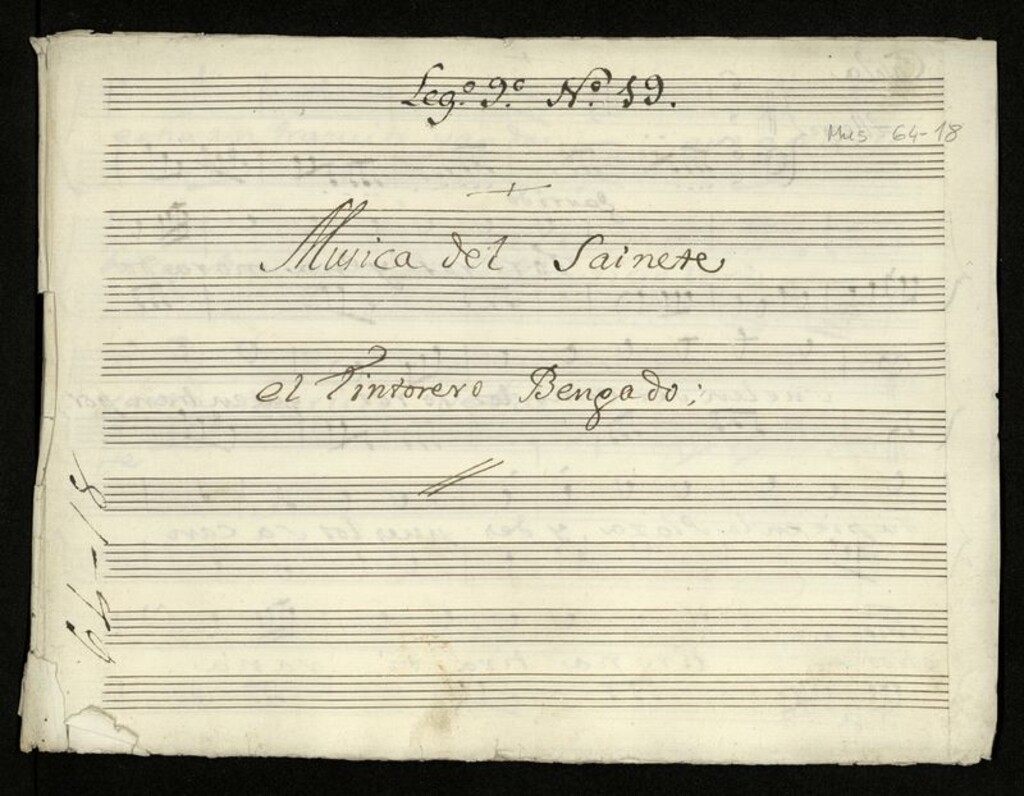 Leg.º 9.º N.º 19.
Mus 64-18
Musica del Sainete
el Tintorero Bengado;
64-18